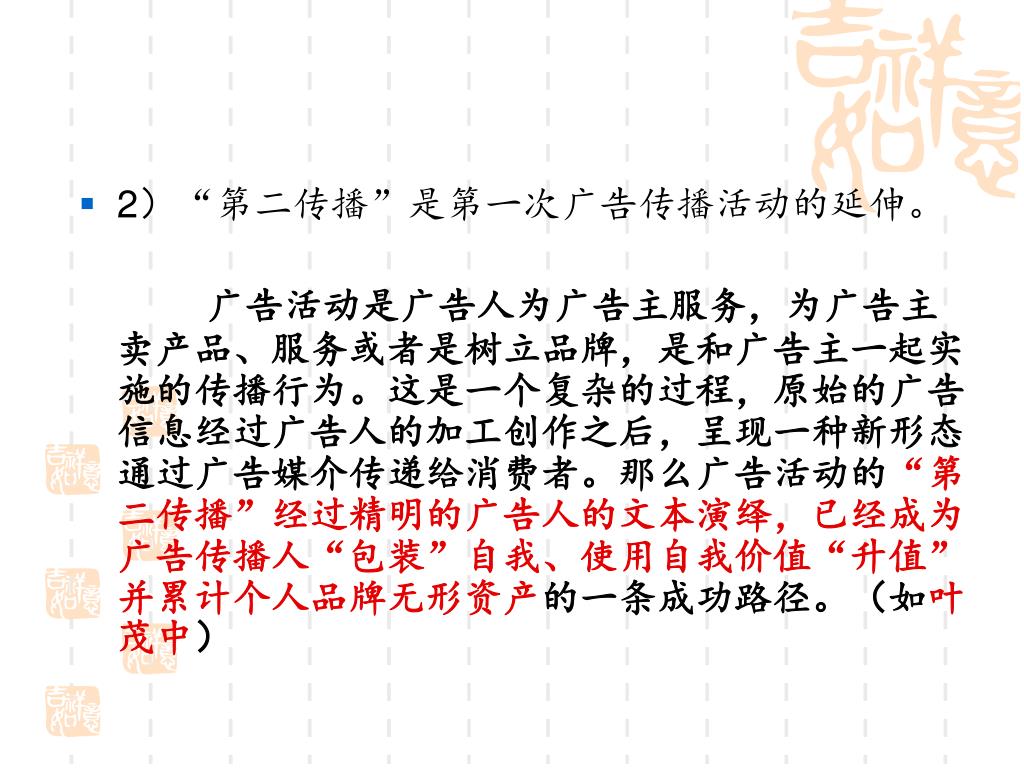 吉祥
如意
2）“第二传播”是第一次广告传播活动的延伸。
广告活动是广告人为广告主服务，为广告主
卖产品、服务或者是树立品牌，是和广告主一起实
施的传播行为。这是一个复杂的过程，原始的广告
信息经过广告人的加工创作之后，呈现一种新形态
通过广告媒介传递给消费者。那么广告活动的“第
二传播”经过精明的广告人的文本演绎，已经成为
广告传播人“包装”自我、使用自我价值“升值”
并累计个人品牌无形资产的一条成功路径。（如叶
茂中）
吉祥
如意
吉祥
如意
吉祥
如意
吉祥
如意
吉祥
如意
吉祥
如意